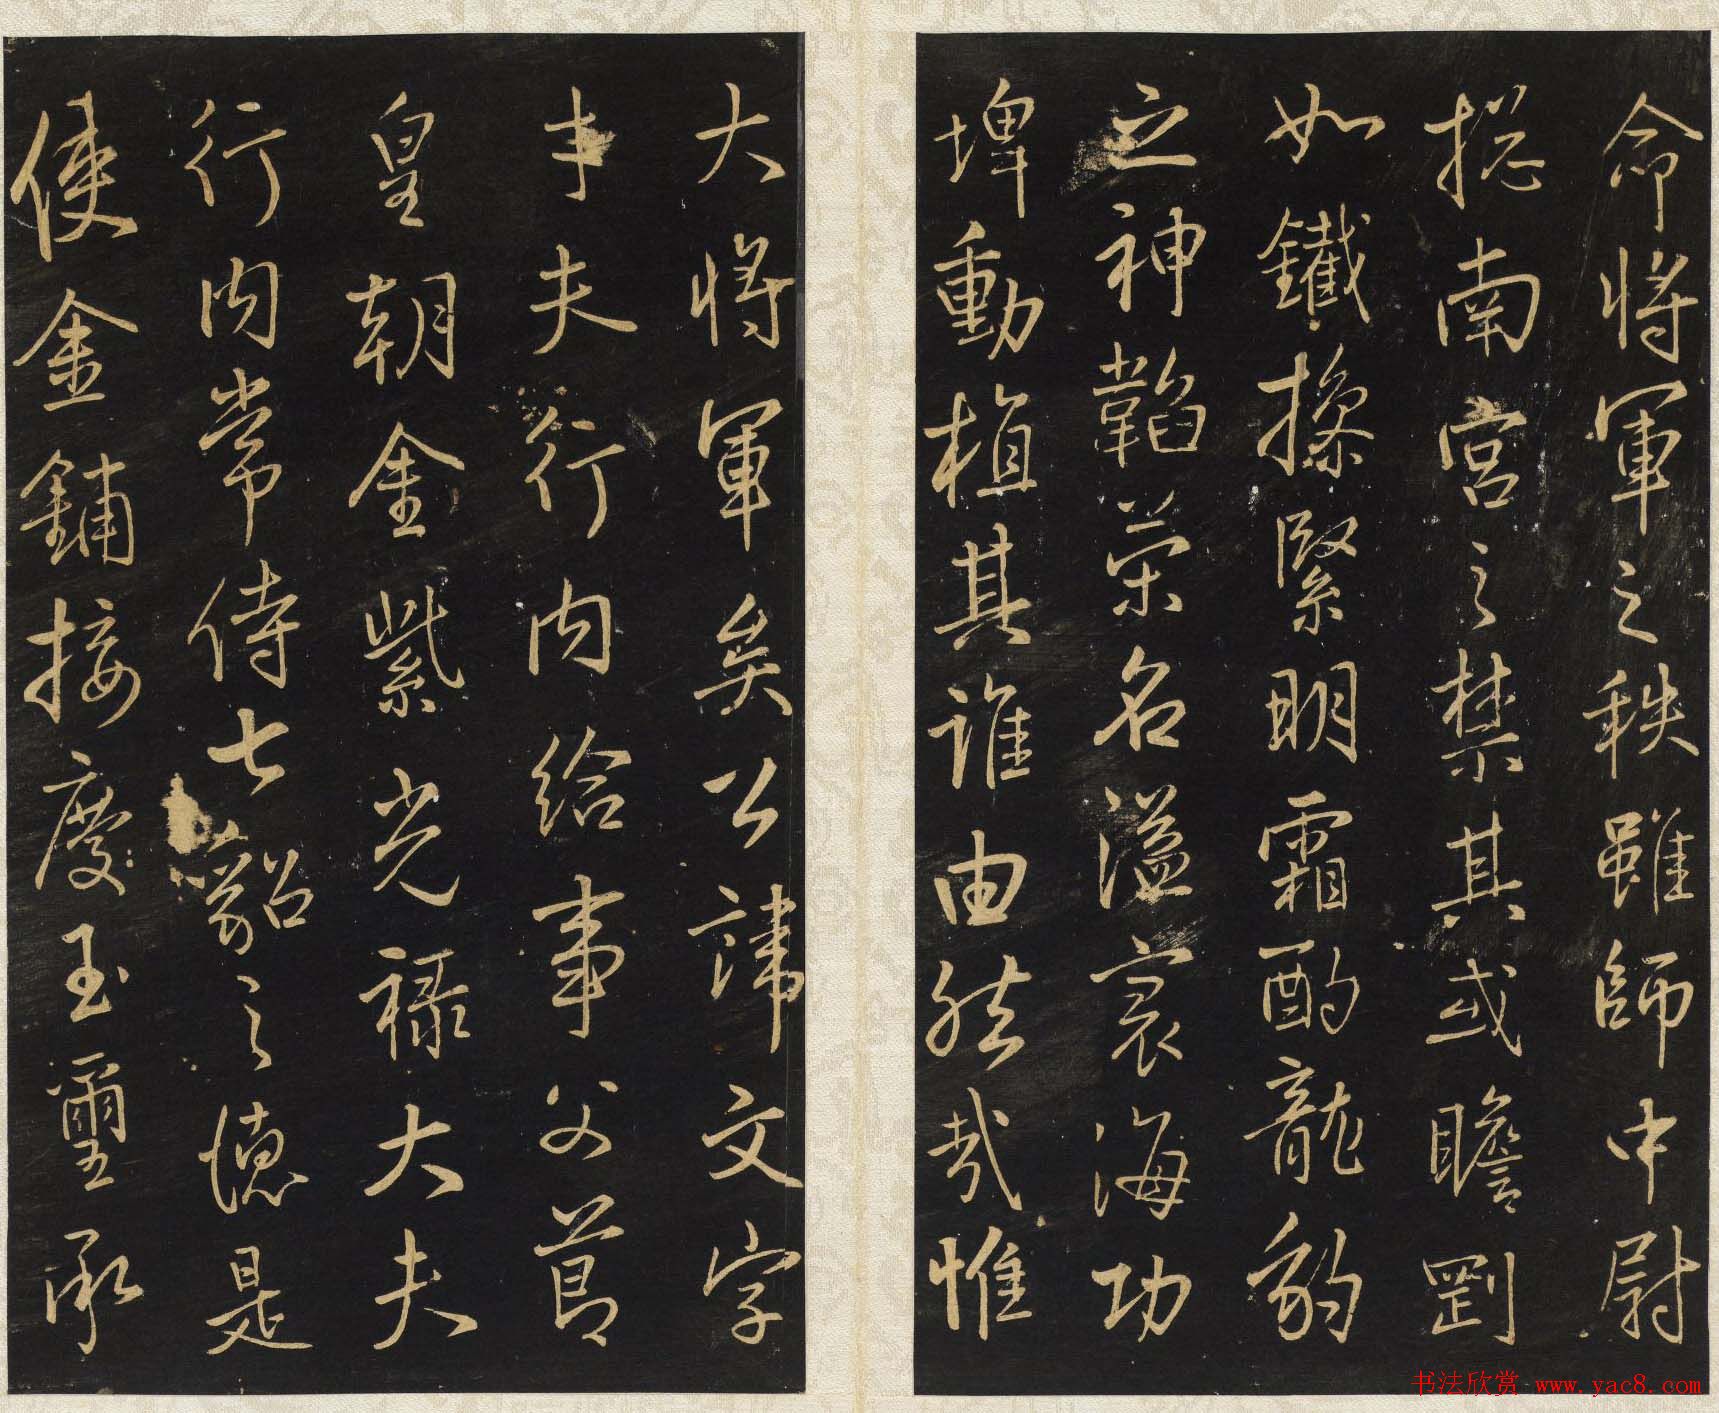 命將軍之秩雖師中尉
揔南宮之禁其或膽剛
如鐵操緊明霜酌龍豹
之神韜榮名溢寰海功
埤動植其誰由然哉惟
大將軍矣公諱文字
才夫行內給事父節
皇朝金紫光祿大夫
行內常侍七貂之德是
使金鋪接慶玉璽承
书法欣赏 www.yac8.com